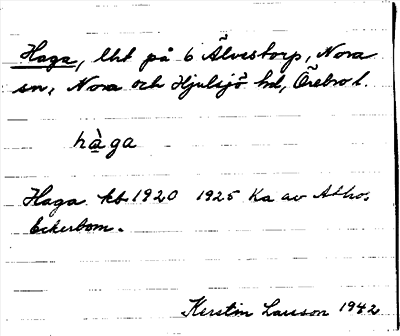 Haga, lht på 6 Älvestorp, Nora
sn, Nora och Hjulsjö hd, Örebro l.
hàga
Haga kb 1920 1925 Ka av
Eckerbom.
Kerstin Larsson 1942